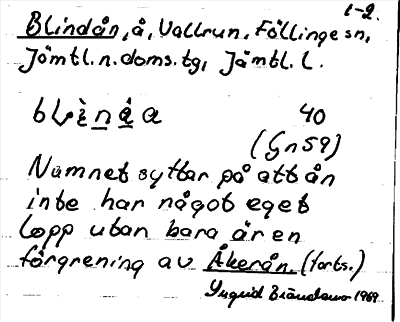 1-2.
Blindån, å, Vallrun, Föllinge sn,
Jämtl. n. doms. tg, Jämtl. l.
40
(Gn 59)
Namnet syftar på att ån
inte har något eget
lopp utan bara är en
förgrening av Åkerån. (forts.)
Ingrid 1969